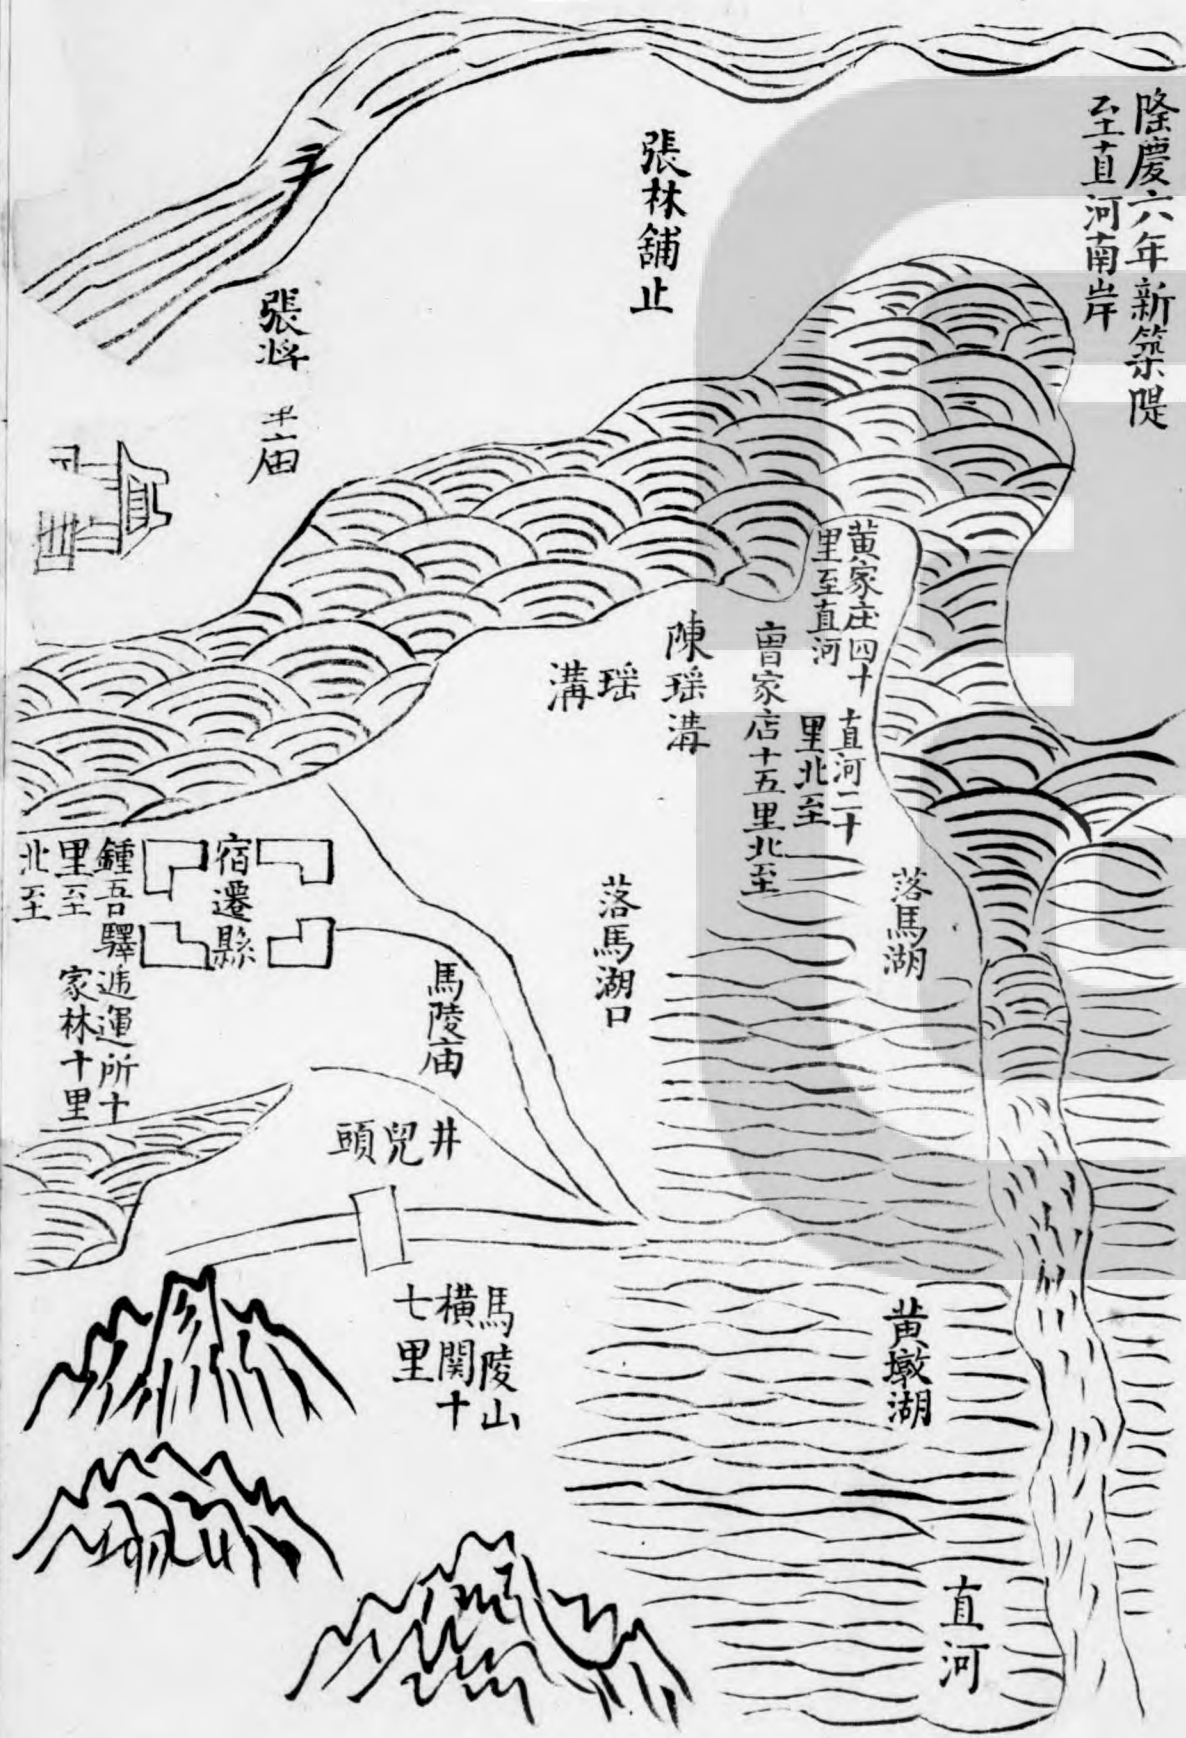 隆慶六年新築隄
至直河南岸
張林舖止
張將
庙
黄家庄四十
里至直河
直河二十
里北至
曹家店十五里北至
陳瑶溝
瑶
溝
落馬湖
落馬湖口
宿遷縣
鍾吾驛逓運所十
里至
家林十里
北至
馬陵庙
井兒頭
馬陵山
横関十
七里
黄墩湖
直河